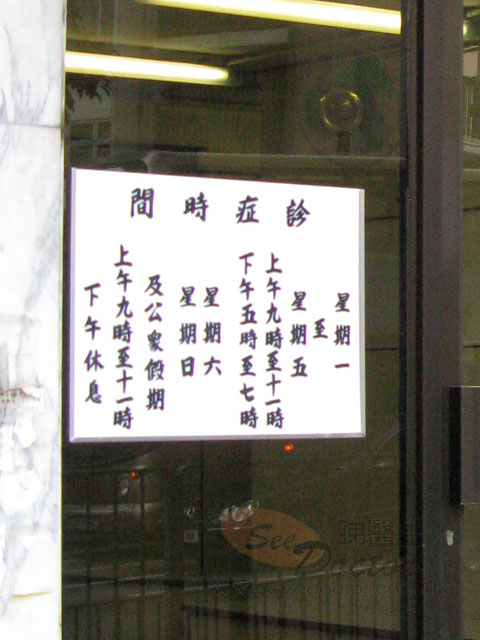 診症時間
星期一
至
星期五
上午九時至十一時
下午五時至七時
星期六
星期日
及公眾假期
上午九時至十一時
下午休息
See
Doctor
睇醫生